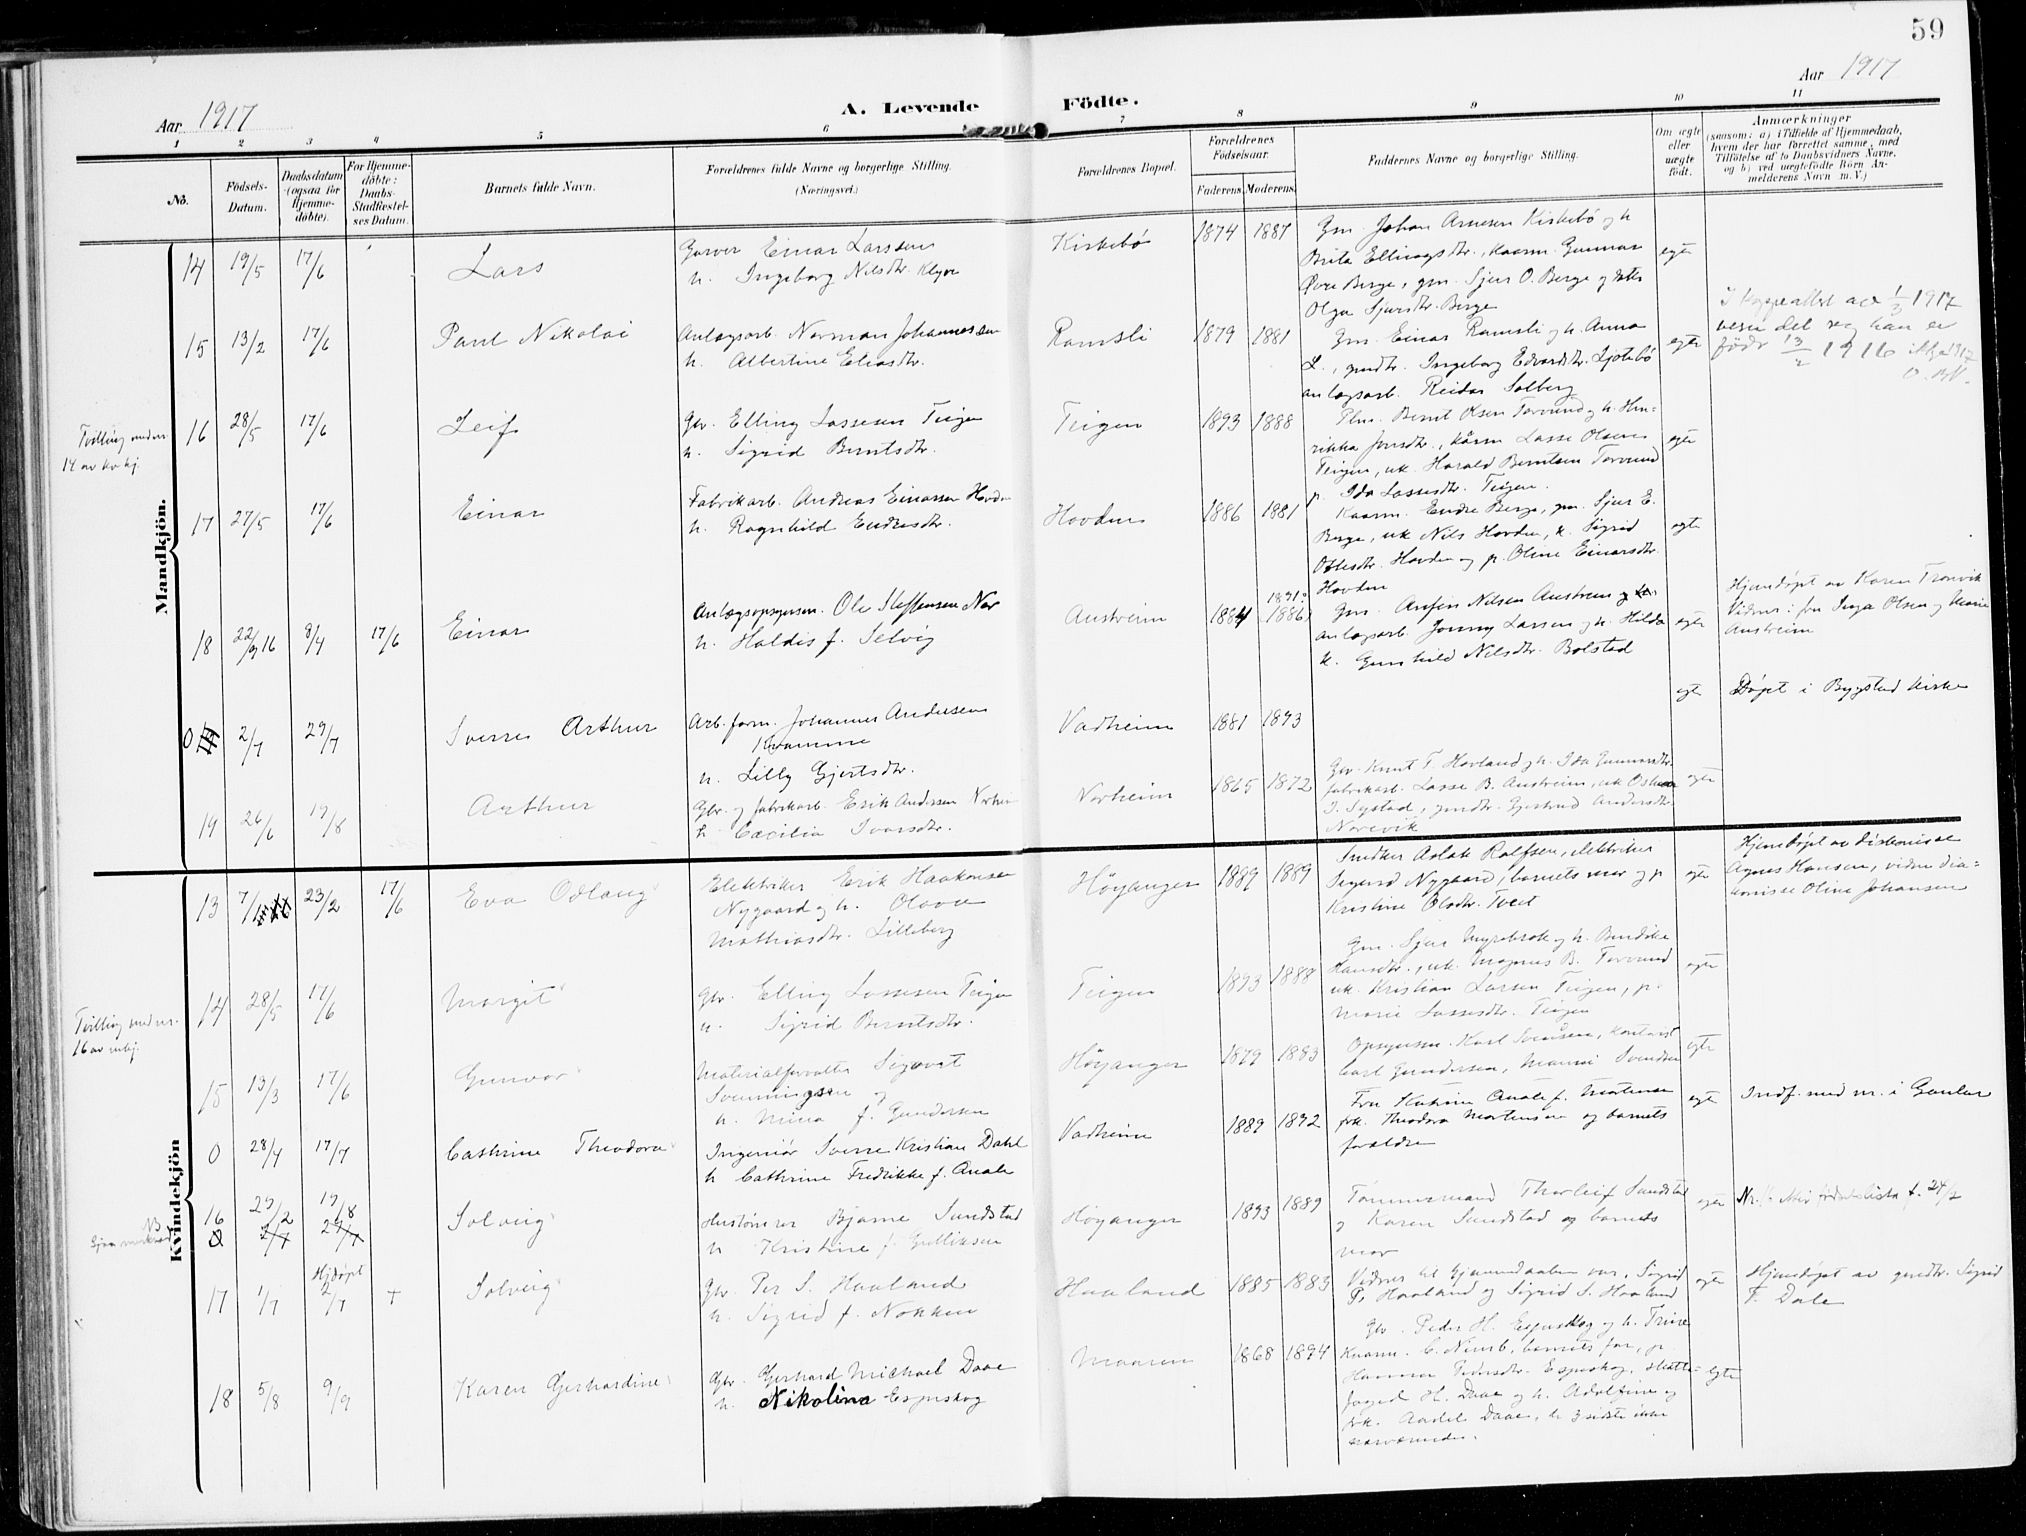 59
Aar 1917
A. Levende Födte.
Aar 1917
1 2 3 4 5 6 7 8 9 10 11
No.
Födsels-Datum.
Daabsdatum (ogsaa for Hjemmedöbte).
For Hjemmedöbte: Daabs-Stadfæstelses Datum.
Barnets fulde Navn.
Forældrenes fulde Navne og borgerlige Stilling. (Næringsvei.)
Forældrenes Bopæl.
Forældrenes Födselsaar.
Faderens. Moderens.
Faddernes Navne og borgerlige Stilling.
Om ægte eller uægte födt.
Anmærkninger
(saasom: a) i Tilfælde af Hjemmedaab,
hvem der har forrettet samme, med
Tilföielse af to Daabsvidners Navne,
og b) ved uægtefödte Börn An-
melderens Navn m. V.)
Mandkjön.
14 19/5 17/6 Lars
Garver Einar Larssen
h. Ingeborg Nilsdtr. Klyve
Kirkebø 1874 1887
Gm. Johan Arnesen Kirkebø og h.
Brita Ellingsdtr., kaarm. Gunnar
Øvre Berge, gm. Sjur O. Berge og
Olga Sjursdtr. Berge
egte
15 13/2 17/6 Paul Nikolai
Anlægsarb. Norman Johannessen
h. Albertine Eliasdtr.
Ramsli 1879 1881
Gm. Einar Ramsli og h. Anna
L., gmdtr. Ingeborg Edvardsdtr. Ljotebø
anlægsarb. Reidar Solberg
egte
1/3 1917
han er
født 13/2 1916 ikkje 1917
Tvilling med nr.
14 av kv.kj.
16 28/5 17/6 Leif
Gbr. Elling Lassesen Teigen
h. Sigrid Berntsdtr.
Teigen 1893 1888
Plm. Bernt Olsen Torvund og h. Hen-
rikka Jensdtr., kårm. Lasse Olsen
Teigen, uk. Harald Berntsen Torvund
p. Ida Lassesdtr. Teigen.
egte
17 27/5 17/6 Einar
Fabrikarb. Andreas Einarsen Hovden
h. Ragnhild Endresdtr.
Hovden 1886 1881
Kaarm. Endre Berge, gm. Sjur E.
Berge, uk. Nils Hovden, k. Sigrid
Ottesdtr. Hovden og p. Oline Einarsdtr.
Hovden
egte
18 22/9 16 8/4 17/6 Einar
Anlægsopsynsm. Ole Steffensen Nor
h. Haldis f. Selvig
Austreim 1884 1891: (1886)
Gm. Anfin Nilsen Austreim
anlagsarb. Jonny Larsen og h. Hilda
k. Gunhild Nilsdtr. Bolstad
egte
Hjemdøpt av Karen Tronvik
Vidner: fru Inga Olsen og Marie
Austreim
0 2/7 29/7 Sverre Arthur
Arb.form. Johannes Andersen
Kvamme
h. Lilly Gjertsdtr.
Vadheim 1881 1893
egte
Døpt i Bygstad kirke
19 26/6 19/8 Arthur
Gbr. og fabrikarb. Erik Andersen Norheim
h. Cæcilia Ivarsdtr.
Norheim 1865 1872
Gbr. Knut T. Hovland og h. Ida Gunnarsdtr.
fabrikarb. Lasse B. Austreim, uk. Oskar
I. Systad, gmdtr. Gjertrud Andersdtr.
Norevik
egte
Kvindekjön
13 7/1 23/2 17/6 Eva Odlaug
Elektriker Erik Haakonsen
Nygaard og h. Olava
Mathiasdtr. Lilleberg
Høyanger 1889 1889
Snedker Aslak Rolfsen, elektriker
Sigurd Nygaard, barnets mor og p.
Kristine Olsdtr. Tveit
egte
Hjemdøpt av diakonisse
Agnes Hansen, vidne dia-
konisse Oline Johansen
Tvilling med nr.
16 av mkj.
14 28/5 17/6 Margit
Gbr. Elling Lassesen Teigen
h. Sigrid Berntsdtr.
Teigen 1893 1888
Gm. Sjur Myrebrok og h. Bendike
Hansdtr., uk. Magnus B. Torvund
uk. Kristian Larsen Teigen, p.
Marie Lassesdtr. Teigen
egte
15 13/3 17/6 Gunvor
Materialforvalter Sigvat
Svenningsen og
h. Mina f. Gundersen
Høyanger 1879 1883
Opsynsm. Karl Svensen, kontorist
Carl Gundersen, Mammi Svendsen
egte
0 28/4 17/7 Cathrine Theodora
Ingeniør Sverre Kristian Dahl
h. Cathrine Fredrikke f. Anale
Vadheim 1889 1892
Fru Katrine Anale f. Mortensen
frk. Theodora Mortensen og barnets
forældre
egte
Indf. med nr. i Gaular
NB
16 29/2 19/8 Solveig
Hustømrer Bjarne Sundstad
h. Kristine f. Gulliksen
Høyanger 1893 1889
Tømmermand Thorleif Sundstad
og Karen Sundstad og barnets
mor
egte
17 1/7 Hjdøpt 2/7 + Solveig
Gbr. Per S. Haaland
h. Sigrid f. Nokken
Haaland 1885 1883
Vidner til hjemmedaaben var: Sigrid
P. Haaland og Sigrid S. Haaland
egte
Hjemdøpt av gmdtr. Sigrid
F. Dale
18 5/8 9/9 Karen Gerhardine
Gbr. Gerhard Michael Daae
h. Nikolina Espeskog
Maaren 1868 1894
Gbr. Peder H. Espeskog og h. Trine
Kaarm. C. Nimb, barnets far, p.
Hanna Pedersdtr. Espeskog, skatte-
foged H. Daae og h. Adolfine og
frk. Aadel Daae, de 3 sidste ikke
nærværende.
egte